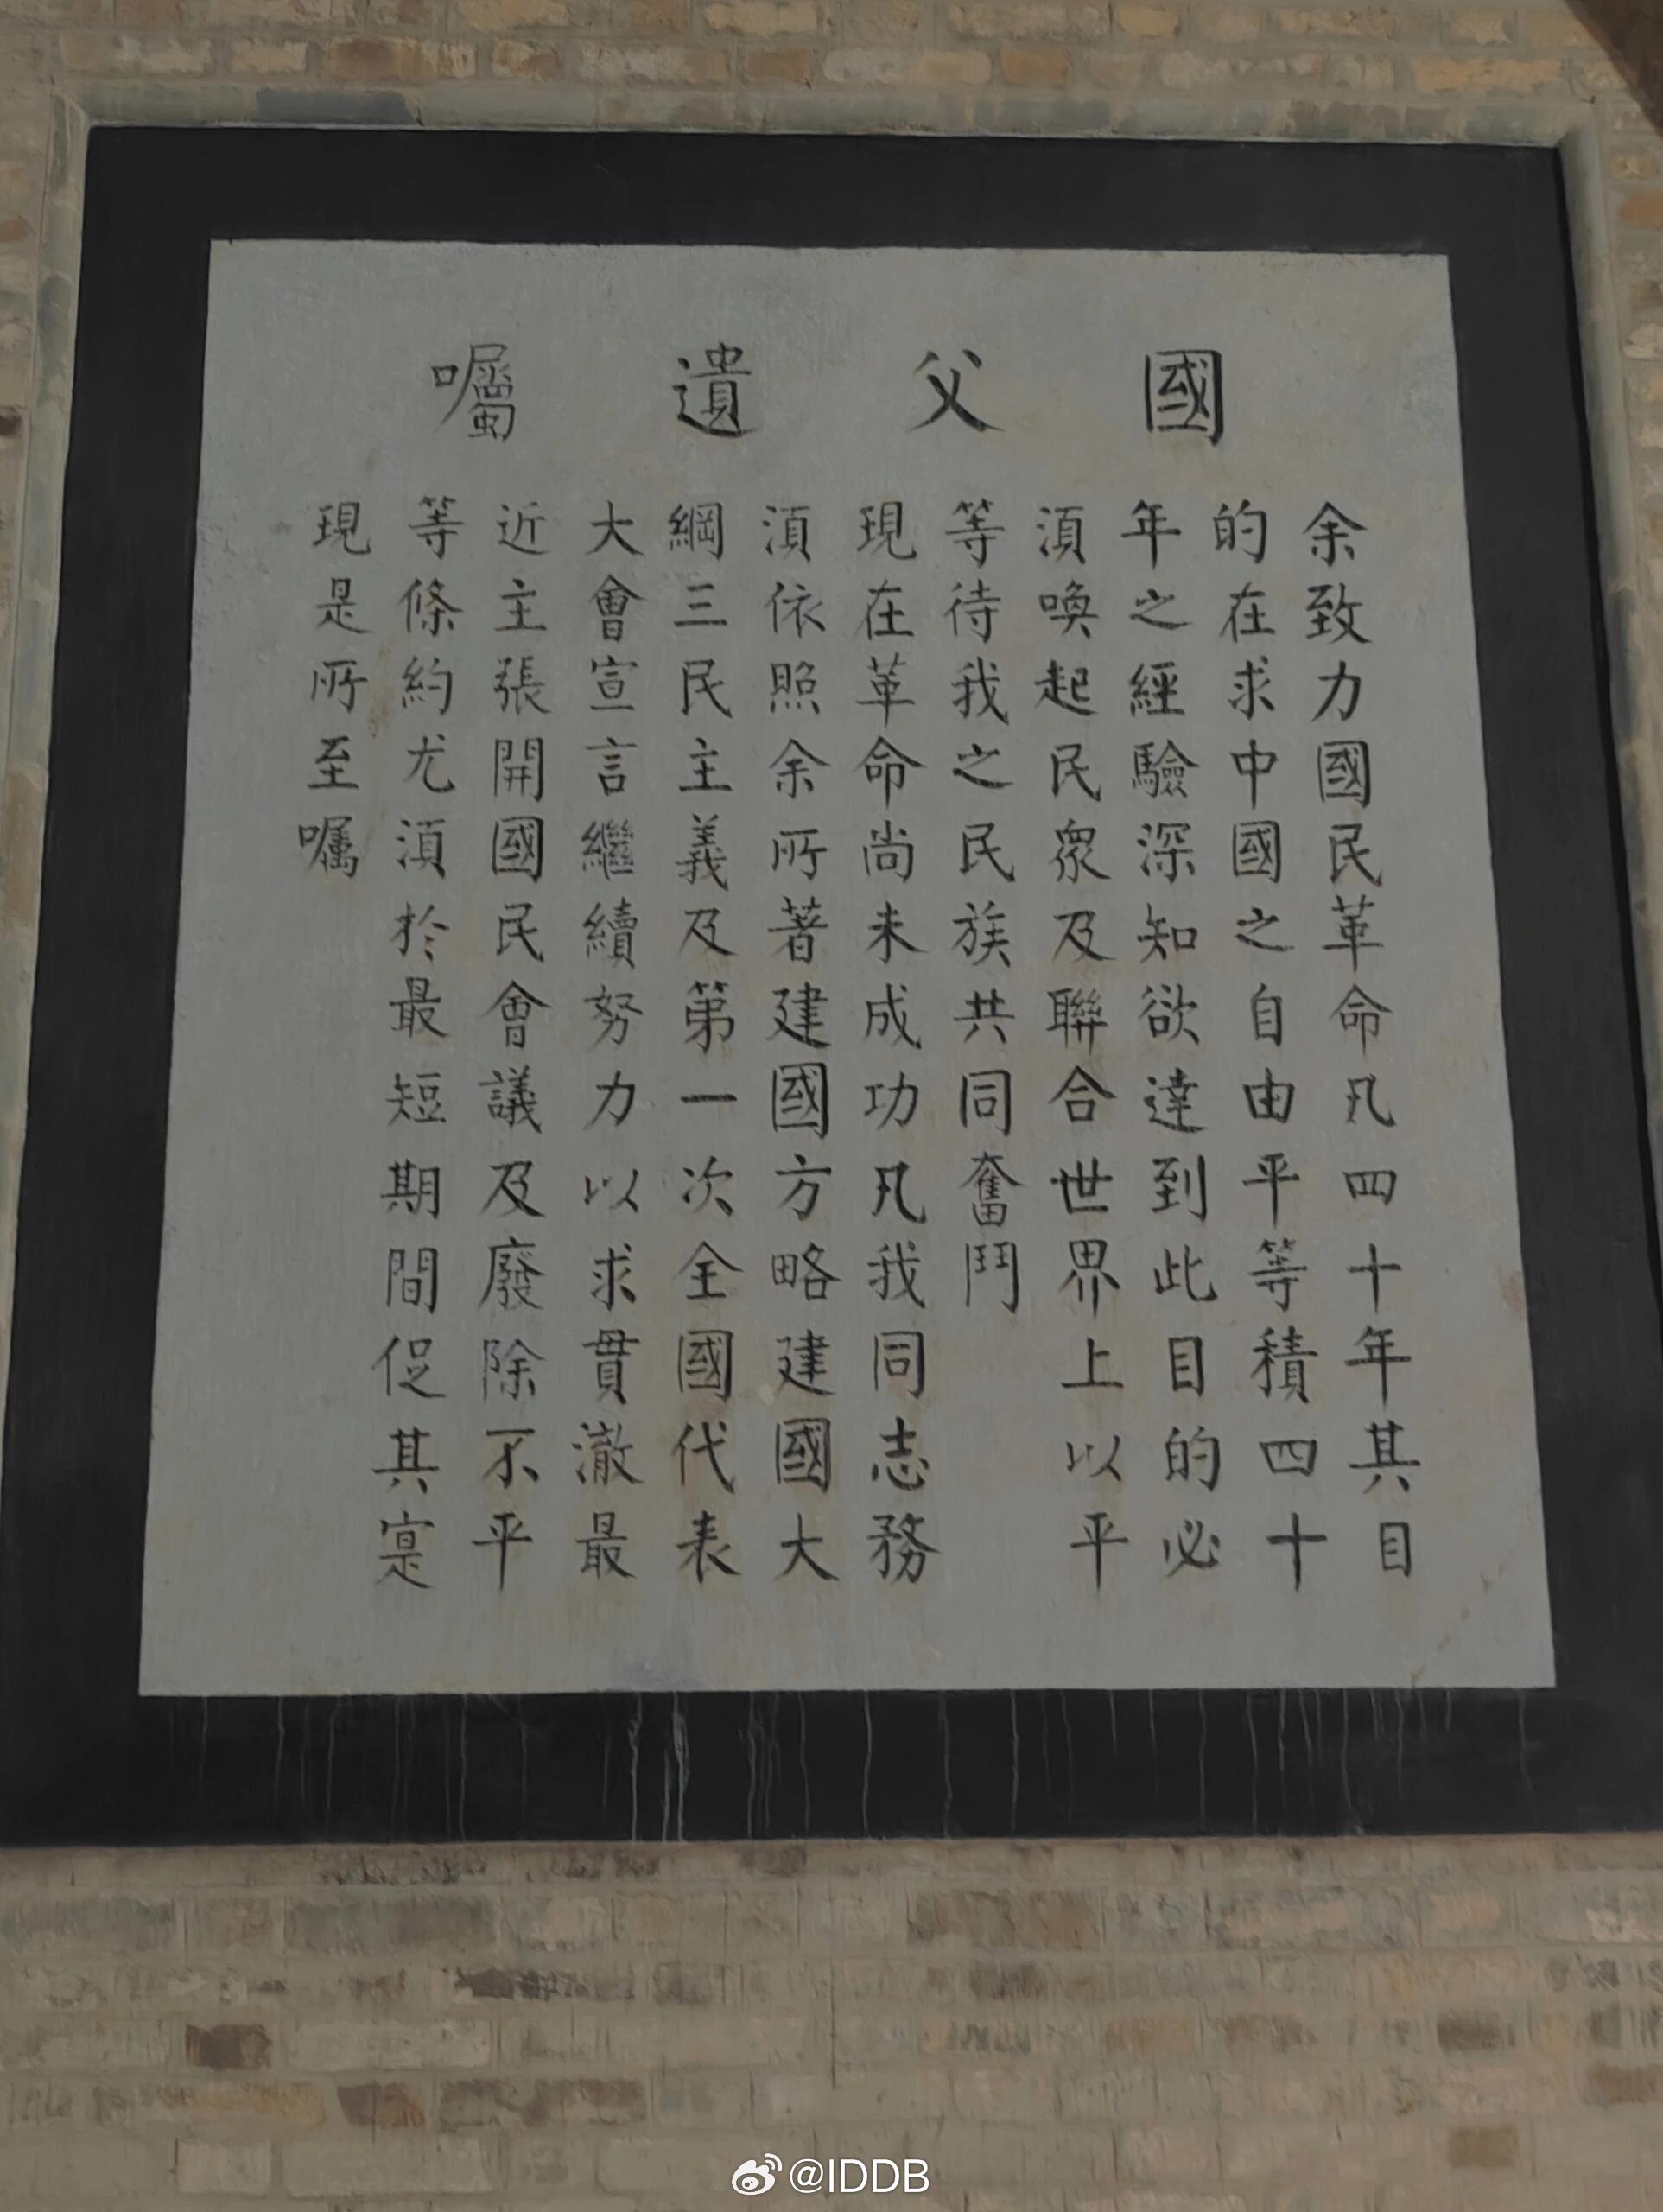 國父遺囑
余致力國民革命凡四十年其目
的在求中國之自由平等積四十
年之經驗深知欲達到此目的必
湏喚起民衆及聯合世界上以平
等待我之民族共同奮鬥
現在革命尚未成功凡我同志務
湏依照余所著建國方略建國大
綱三民主義及第一次全國代表
大會宣言繼續努力以求貫澈最
近主張開國民會議及廢除不平
等條約尤湏於最短期間促其寔
現是所至囑
@IDDB